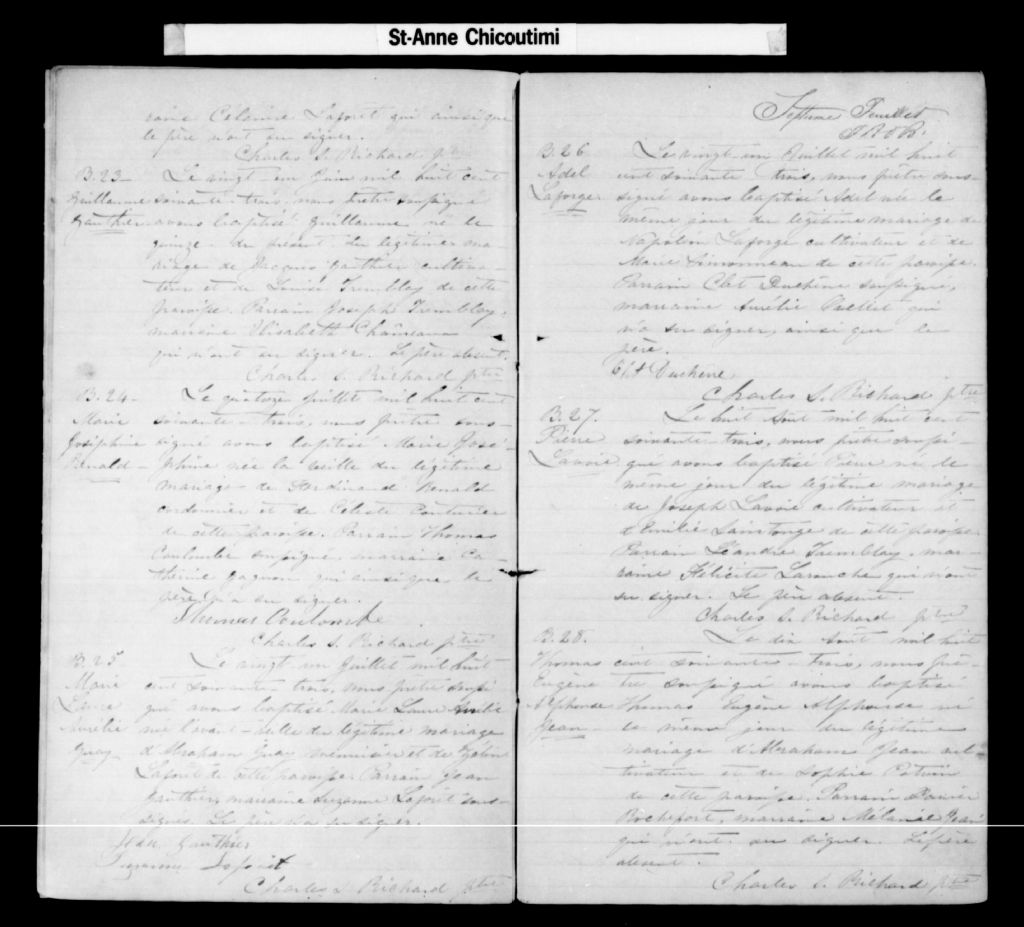 St-Anne Chicoutimi
raine Célanire Laforêt qui ainsi que
le père n'ont su signer.
Charles S. Richard ptre
B. 23 Le vingt-un Juin mil huit cent
Guillaume soixante-trois, nous prêtre soussigné
Gauthier avons baptisé Guillaume né le
quinze du présent du légitime ma-
riage de Jacques Gauthier cultiva-
teur et de Louise Tremblay de cette
paroisse. Parrain Joseph Tremblay,
marraine Elisabeth
qui n'ont su signer. Le père absent.
Charles S. Richard ptre
B. 24 Le quatorze juillet mil huit cent
Marie soixante-trois, nous prêtre sous-
Josephine signé avons baptisé Marie José-
Renald phine née la veille du légitime
mariage de Ferdinand Renald
cordonnier et de Céleste Couturier
de cette paroisse. Parrain Thomas
Coulombe soussigné, marraine Ca-
therine Gagnon qui ainsi que le
père n'a su signer.
Thomas Coulombe
Charles S. Richard ptre
B. 25 Le vingt-un Juillet mil huit
Marie cent soixante-trois, nous prêtre soussi-
Laure gné avons baptisé Marie Laure Aurélie
Aurélie née l'avant-veille du légitime mariage
Guay d'Abraham Guay menuisier et de
Laforêt de cette paroisse. Parrain Jean
Gauthier, marraine Suzanne Laforêt sous-
signés. Le père n'a su signer.
Jean Gauthier
Suzanne Laforêt
Charles S. Richard ptre
Septième Feuillet
B. 26 Le vingt-un Juillet mil huit
Adel cent soixante-trois, nous prêtre sous-
Laforge signé avons baptisé Adel née le
même jour du légitime mariage de
Napoléon Laforge cultivateur et de
Marie Simonneau de cette paroisse.
Parrain Clet Duchêne soussigné,
marraine Aurélie Ouellet qui
n'a su signer, ainsi que le
père.
Clet Duchêne
Charles S. Richard ptre
B. 27 Le huit Août mil huit cent
Pierre soixante-trois, nous prêtre soussi-
Lavoie gné avons baptisé Pierre né le
même jour du légitime mariage
de Joseph Lavoie cultivateur et
d'Emilie Saintonge de cette paroisse.
Parrain Léandre Tremblay, mar-
raine Félicité Larouche qui n'ont
su signer. Le père absent.
Charles S. Richard ptre
B. 28 Le dix Août mil huit
Thomas cent soixante-trois, nous prê-
Eugène tre soussigné avons baptisé
Alphonse Thomas Eugène Alphonse né
Jean le même jour du légitime
mariage d'Abraham Jean cul-
tivateur et de Sophie Potvin
de cette paroisse. Parrain Xavier
Rochefort, marraine Mélanie Jean
qui n'ont su signer. Le père
absent.
Charles S. Richard ptre